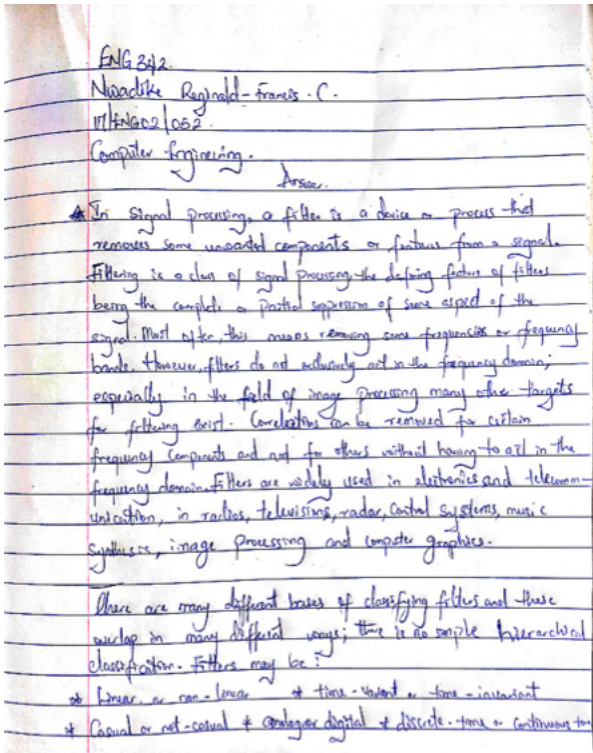 ENG 342.
Nwadike Reginald-Francis. C.
17/ENG02/052.
Computer Engineering.
Answer.
* In signal processing, a filter is a device or process that
removes some unwanted components or features from a signal.
Filtering is a class of signal processing the defining feature of filters
being the complete or Partial suppression of some aspect of the
signal. Most often, this means removing some frequencies or frequency
bands. However, filters do not exclusively act in the frequency domain;
especially in the field of image processing many other targets
for filtering exist. Correlations can be removed for certain
frequency components and not for others without having to act in the
frequency domain. Filters are widely used in electronics and telecomm-
unication, in radios, televisions, radar, Control systems, music
synthesis, image processing and computer graphics.
There are many different bases of classifying filters and these
overlap in many different ways; there is no simple hierarchical
classification. Filters may be:
* Linear or non-linear * time-variant or time-invariant
* Casual or not-casual * analog or digital * discrete-time or continuous